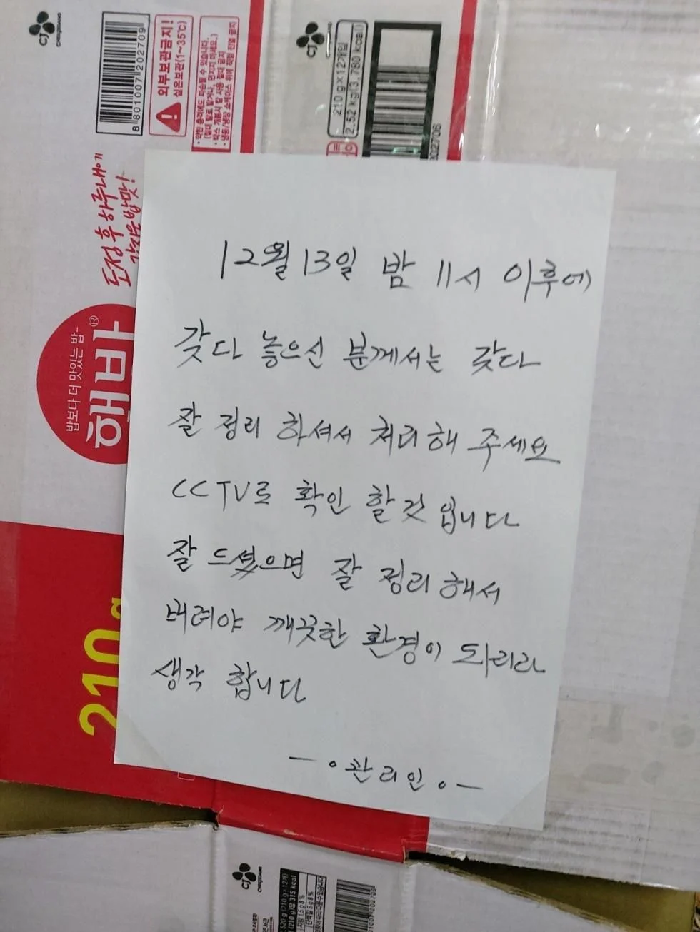 CJ
8 801007 202709
외부보관금지!
실온보관(1~35℃)
CJ
210 g X 12개입
2.52 kg(3,780 kcal)
도정 후 하루내에
갓지은 밥맛!
밥보다 더 맛있는 밥~
햇반
210 g
12월 13일 밤 11시 이후에
갖다 놓으신 분께서는 갖다
잘 정리 하셔서 처리해 주세요
CCTV로 확인 할것 입니다
잘 드셨으면 잘 정리해서
버려야 깨끗한 환경이 되리라
생각 합니다
관리인
CJ